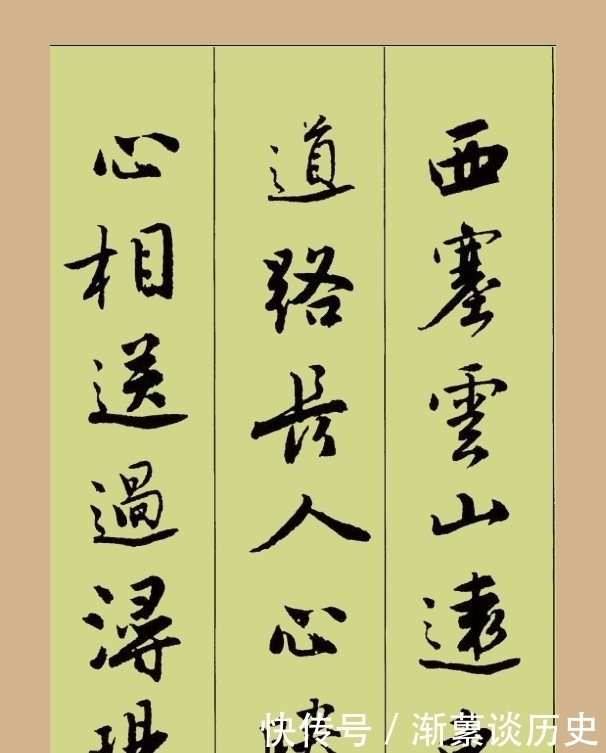 西塞雲山遠
道路長人心
心相送過潯
快传号 / 渐谈历史